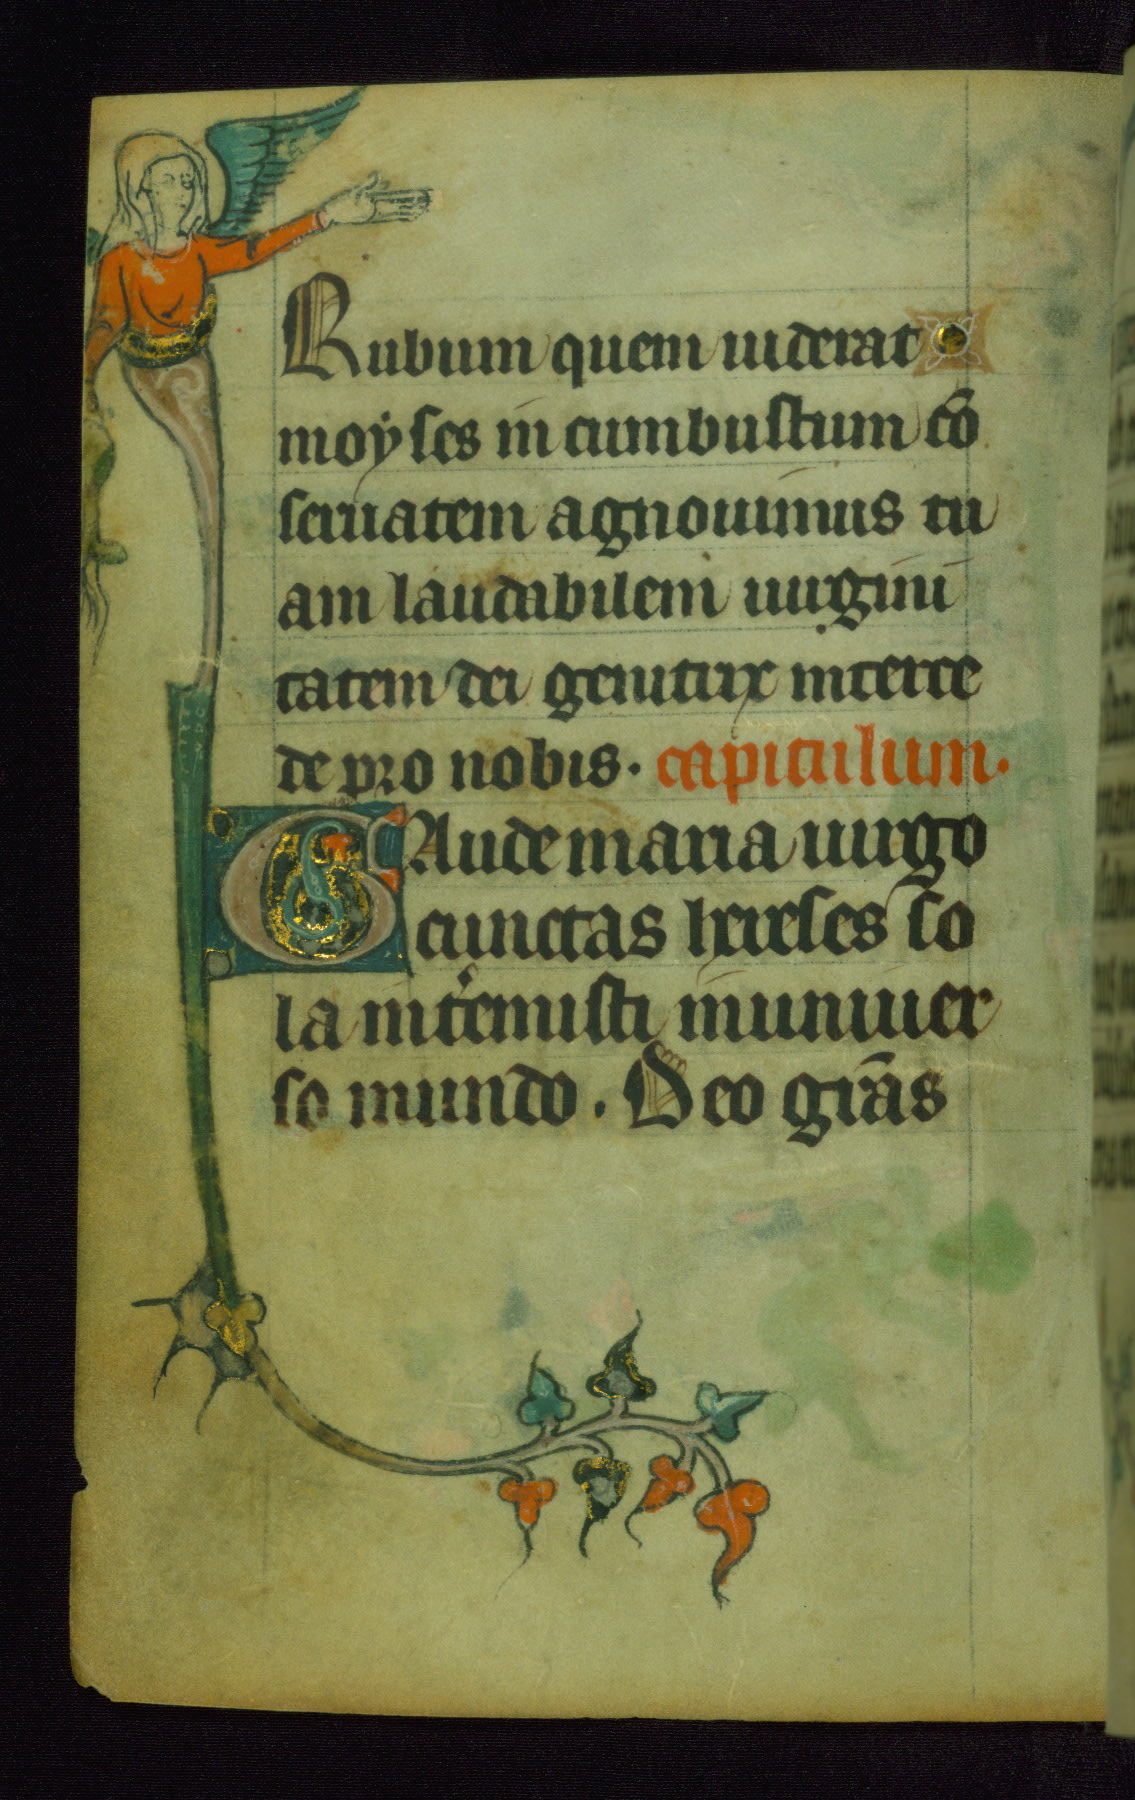 Rubum quem uiderat
moyses in cumbustum cō
seruatem agnouimus tu
am laudabilem uirgini
tatem dei genitrix interce
de pro nobis. capitulum.
GAude maria uirgo
cunctas hereses so
la interemisti in uniuer
so mundo. Deo grās